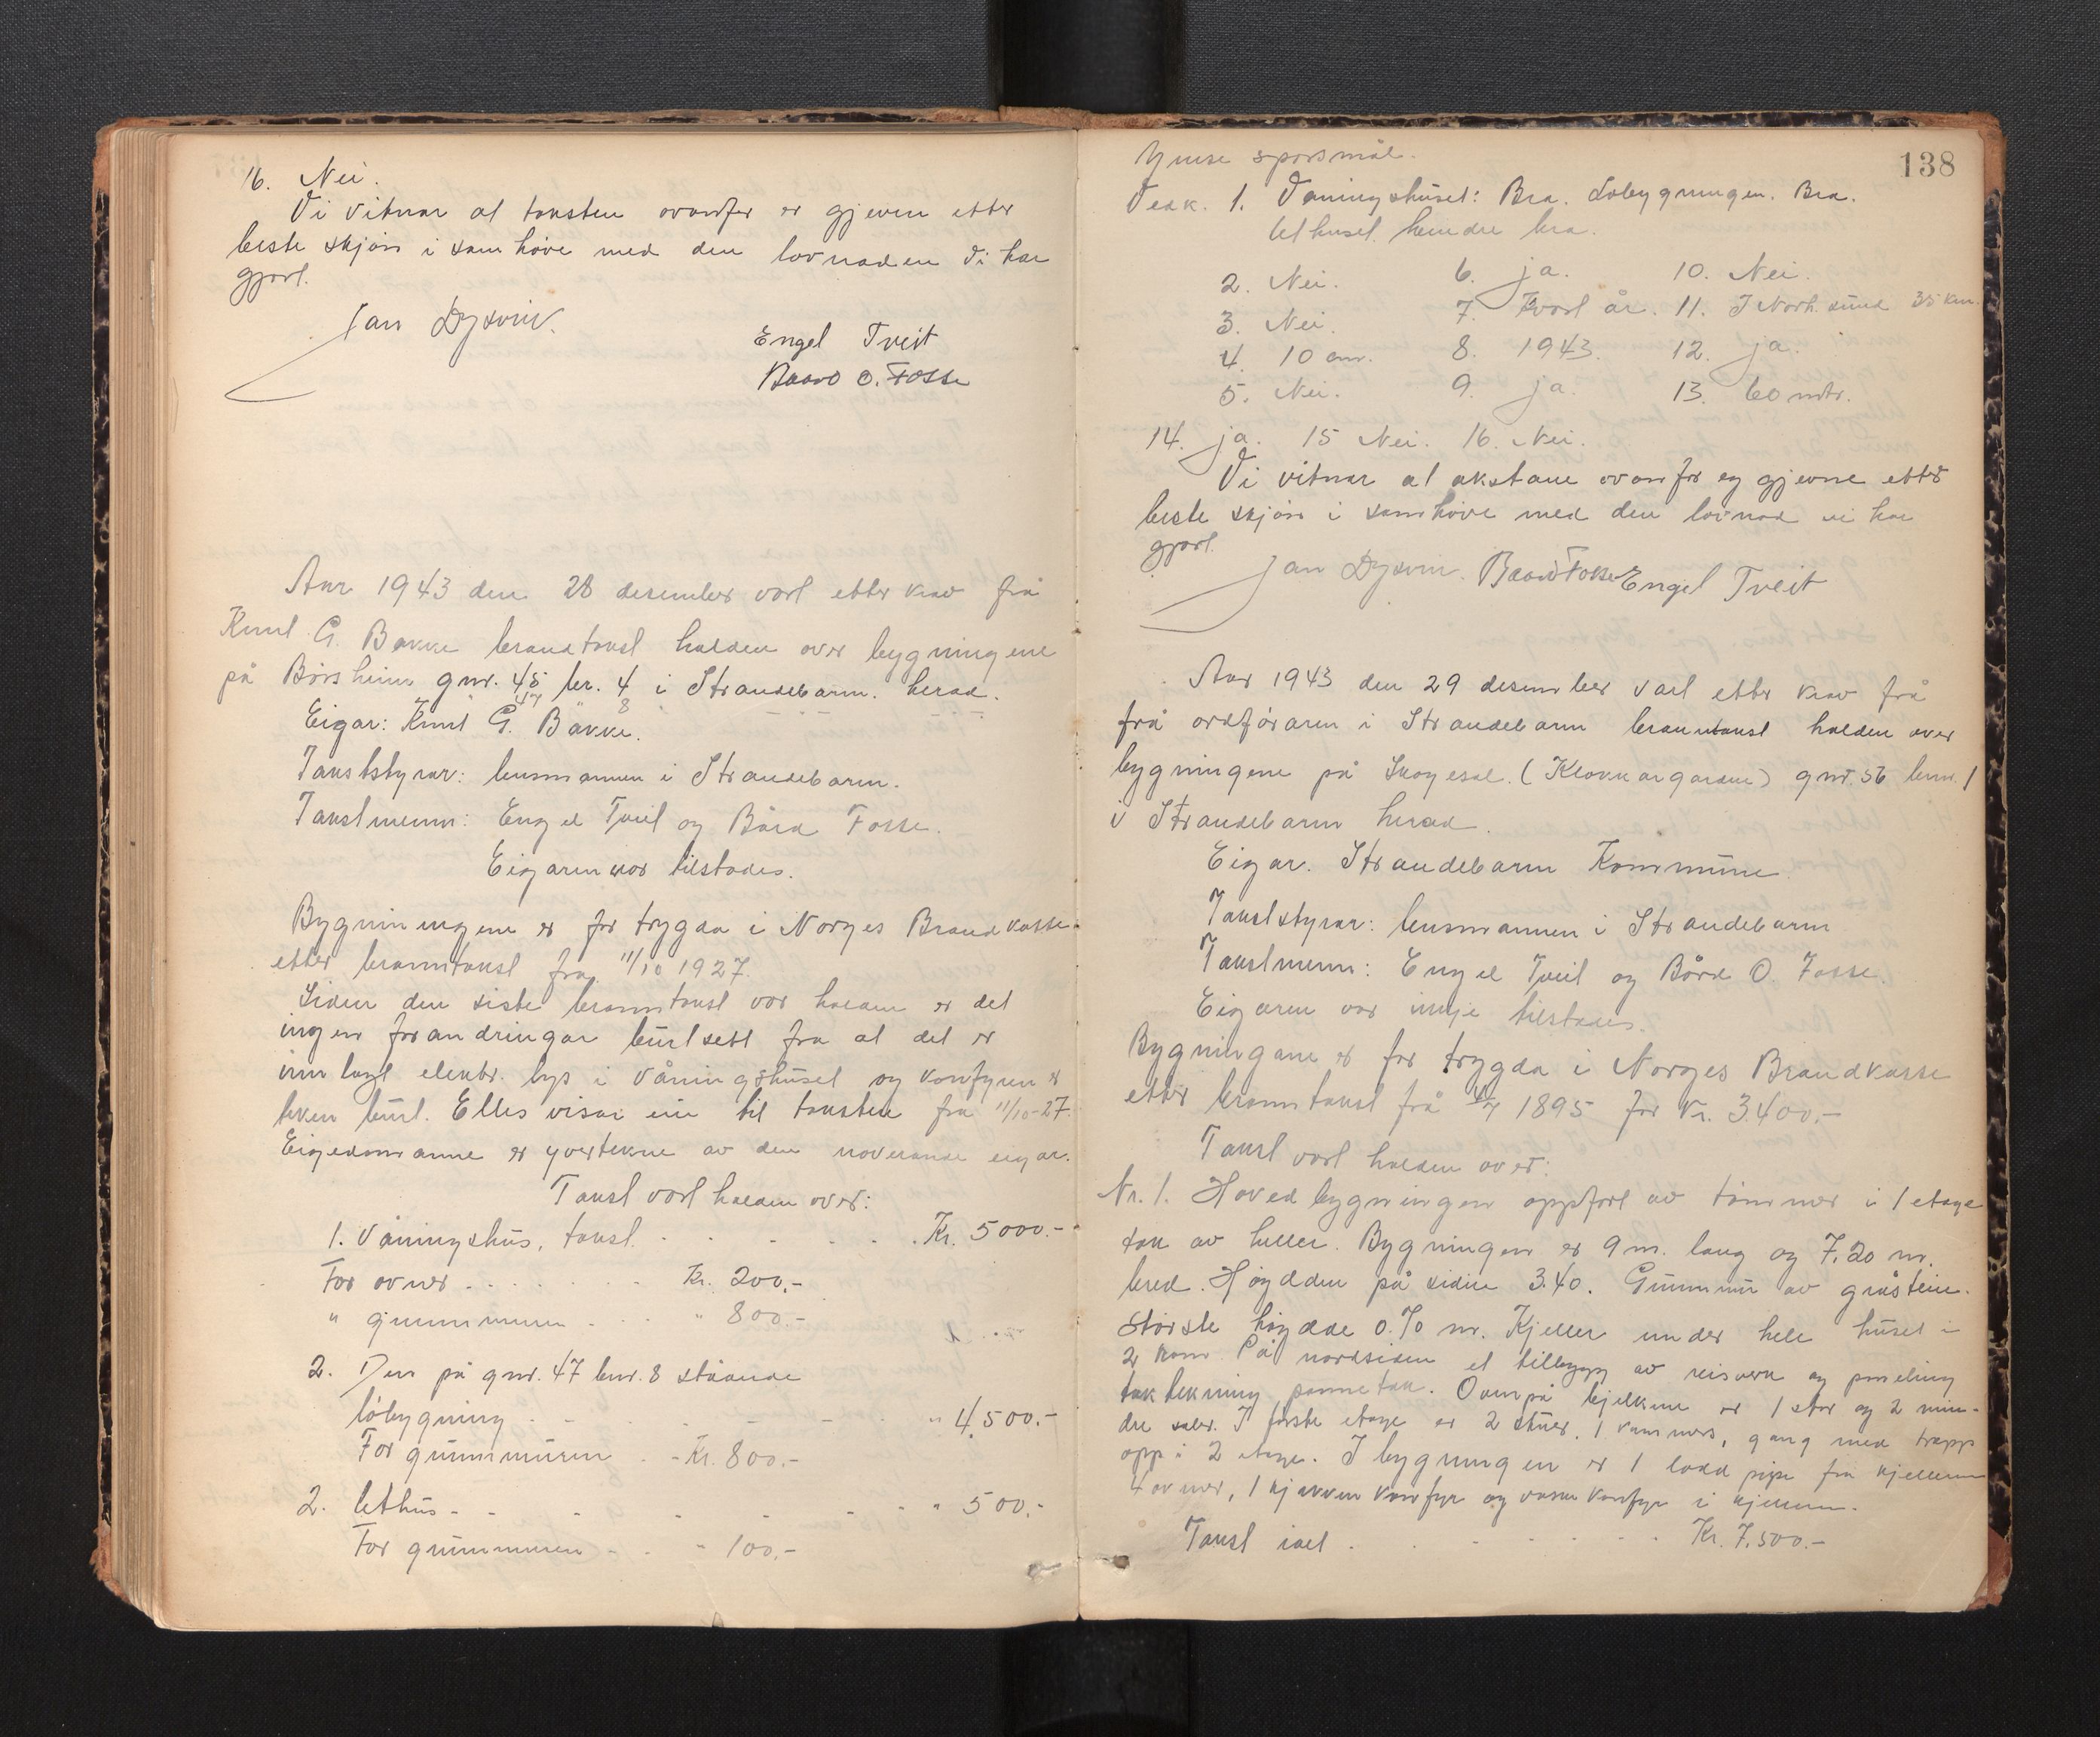 16. Nei.
Vi vitnar at taksten ovanfor er gjeven etter
beste skjøn i samhøve med den lovnaden vi har
gjort.
Jan Dysvik.
Engel Tveit
Baard O. Fosse
Aar 1943 den 28 desember vart etter krav frå
Knut G. Bakke brandtakst halden over bygningene
på Børsheim gnr. 45 br. 4 i Strandebarm herad.
" 47 " 8
Eigar: Knut G. Bakke.
Takststyrar: lensmannen i Strandebarm.
Takstmenn: Engel Tveit og Bård Fosse.
Eigaren var tilstades.
Bygningene er for trygda i Norges Brandkasse
etter branntakst fra 11/10 1927.
Siden den siste branntakst var halden er det
ingen forandringar burtsett fra at det er
inn lagt elektr. lys i våningshuset og komfyren er
teken burt. Elles visar ein til taksten fra 11/10-27.
Eigedomanne er yvertekne av den noverande eigar.
Takst vart halden over:
1. Våningshus, takst. Kr. 5000.-
For ovner Kr. 200.-
" grunnmuren " 800.-
2. Den på gnr. 47 bnr. 8 ståande
løbygning " 4.500.-
For grunnmuren - Kr. 800.-
2. Uthus " 500.-
For grunnmuren " 100.-
138
Ymse sporsmål.
Vedk. 1. Våningshuset: Bra. Løbygningen. Bra.
Uthuset. heudre bra.
2. Nei. 6. ja. 10. Nei.
3. Nei. 7. Kvart år. 11. I Norh.sund 35 km.
4. 10 cm. 8. 1943. 12. ja.
5. Nei. 9. ja. 13. 60 mtr.
14. ja. 15 Nei. 16. Nei.
Vi vitnar at ovanfor gjevne etter
beste skjøn i samhøve med den lovnad vi har
gjort.
Jan Dysvik. Baard Fosse Engel Tveit
Aar 1943 den 29 desember vart etter krav frå
frå ordføraren i Strandebarm branntakst halden over
bygningene på Skogesal. (Klokkargarden) gnr. 56 bnr. 1
i Strandebarm herad.
Eigar. Strandebarm Kommune.
Takststyrar: lensmannen i Strandebarm
Takstmenn: Engel Tveit og Bård O. Fosse.
Eigaren var ikkje tilstades.
Bygningane er for trygda i Norges Brandkasse
etter branntakst frå 1895 for Kr. 3.400.-
Takst vart halden over:
Nr. 1. Hovedbygningen oppført av tømmer i 1 etage
tak av heller. Bygningen er 9 m. lang og 7.20 m.
bred. Høydden på sidene 3.40. Grunnmur av gråstein.
Største høydde 0.70 m. Kjeller under hele huset i
2 rom. På nordsiden et tilbygg av reisverk og paneling
taktekning pannetak. Ovenpå bjelkene er 1 stor og 2 min-
dre saler. I første etage er 2 stuer, 1 kammers, gang med trapp
opp i 2 etage. I bygningen er 1 lodd pipe fra kjelleren
4 ovner, 1 kjøkken komfyr og vaske komfyr i kjelleren.
Takst ialt Kr. 7.500.-